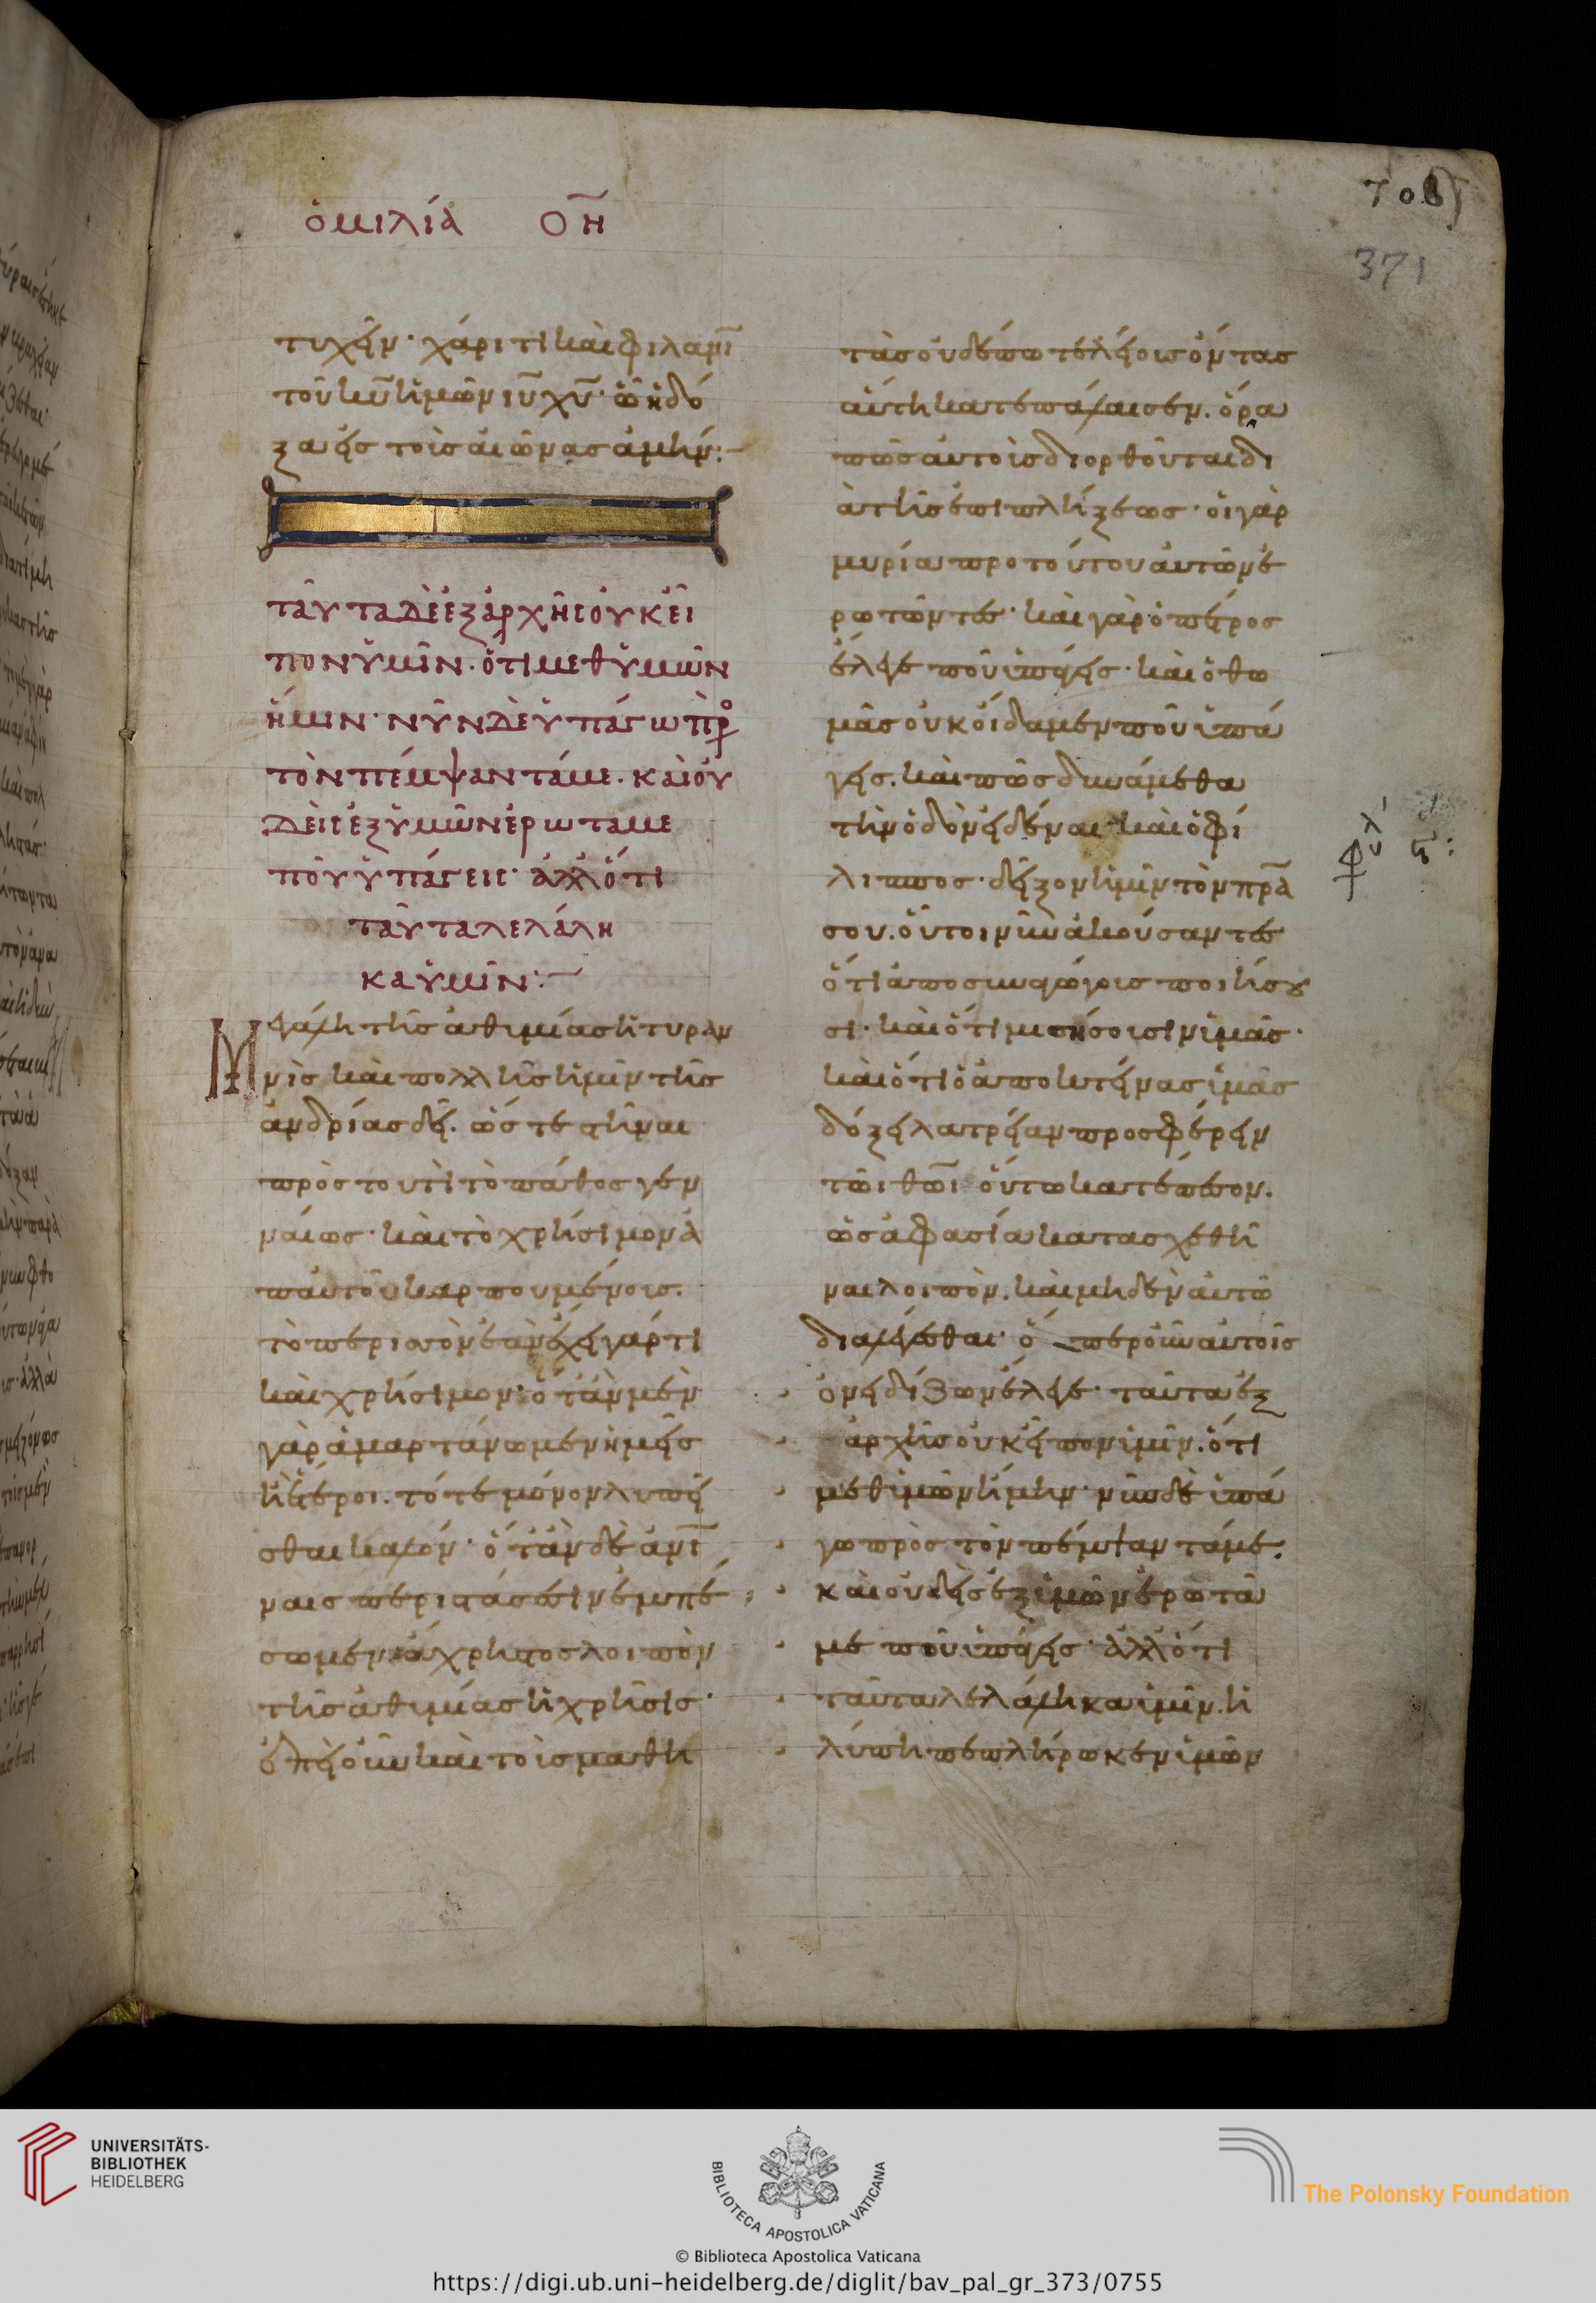 ὁμιλία ΟΗ
708
371
τυχεῖν· χάριτι καὶ φιλανῖ
τοῦ κῦ ἡμῶν ιῦ χῦ· ὧ ἡ δό
ξα εἰς τοὺς αἰῶνας ἀμήν:
ταῦτα δὲ ἐξ ἀρχῆς οὐκ εἶ
πον ὑμῖν· ὅτι μεθ ὑμῶν
ἤμην· νῦν δὲ ὑπάγω πρὸ
τὸν πέμψαντά με· καὶ οὐ
δεὶς ἐξ ὑμῶν ἐρωτα με
ποῦ ὑπάγεις· ἀλλ ὅτι
ταῦτα λελάλη
κα ὑμῖν:
Μεγάλη τῆς ἀθυμίας ἡ τυραν
νὶς καὶ πολλῆς ἡμῖν τῆς
ἀνδρίας δεῖ· ὥστε στῆναι
πρὸς τουτὶ τὸ πάθος γεν
ναίως· καὶ τὸ χρήσιμον ἀ
π αὐτοῦ καρπουμένοις·
τὸ περιττὸν ἐᾶν ἔχει γάρ τι
καὶ χρήσιμον· ὅταν μὲν
γὰρ ἁμαρτάνωμεν ἡμεῖς
ἢ ἕτεροι· τότε μόνον λυπεῖ
σθαι καλόν· ὅταν δὲ ἀνῖ
ναις περιστάσεσιν ἐμπέ
σωμεν ἄχρηστος λοιπὸν
τῆς ἀθυμίας ἡ χρῆσις·
ἐπεὶ οὖν καὶ τοὺς μαθη
τὰς οὐδέπω τελείους ὄντας
αὕτη κατεπάλαισεν· ὅρα
πῶς αὐτοὺς διορθοῦται δι
ὰ τῆς ἐπιπλήξεως· οἱ γὰρ
μυρία προ τούτου αὐτῶν ἐ
ρωτῶντες· καὶ γὰρ ὁ πέτρος
ἔλεγε ποῦ ὑπάγεις· καὶ ὁ θω
μᾶς οὐκ οἴδαμεν ποῦ ὑπά
γεις· καὶ πῶς δυνάμεθα
τὴν ὁδὸν εἰδέναι καὶ ὁ φί
λιππος· δεῖξον ἡμῖν τὸν πρᾶ
σου· οὗτοι νῦν ἀκούσαντες
ὅτι ἀποσυναγώγους ποιήσου
σι· καὶ ὅτι μισήσουσιν ὑμᾶς·
καὶ ὅτι ὁ ἀποκτείνας ὑμᾶς
δόξει λατρείαν προσφέρειν
τῶι θῶι οὕτω κατέπεσον·
ὡς ἀφασία κατασχεθῆ
ναι λοιπὸν· καὶ μηδὲν αὐτῶ
διαλέγεσθαι· ὅπερ οὖν αὐτοῖς
ὀνειδίζων ἔλεγε· ταῦτα ἐξ
ἀρχῆς οὐκ εἶπον ὑμῖν· ὅτι
μεθ ὑμῶν ἤμην· νῦν δὲ ὑπά
γω πρὸς τὸν πέμψαντά με·
καὶ οὐδεὶς ἐξ ὑμῶν ἐρωτᾶ
με ποῦ ὑπάγεις· ἀλλ ὅτι
ταῦτα λελάληκα ὑμῖν· ἡ
λύπη πεπλήρωκεν ὑμῶν
UNIVERSITÄTS-
BIBLIOTHEK
HEIDELBERG
BIBLIOTECA APOSTOLICA VATICANA
The Polonsky Foundation
© Biblioteca Apostolica Vaticana
https://digi.ub.uni-heidelberg.de/diglit/bav_pal_gr_373/0755